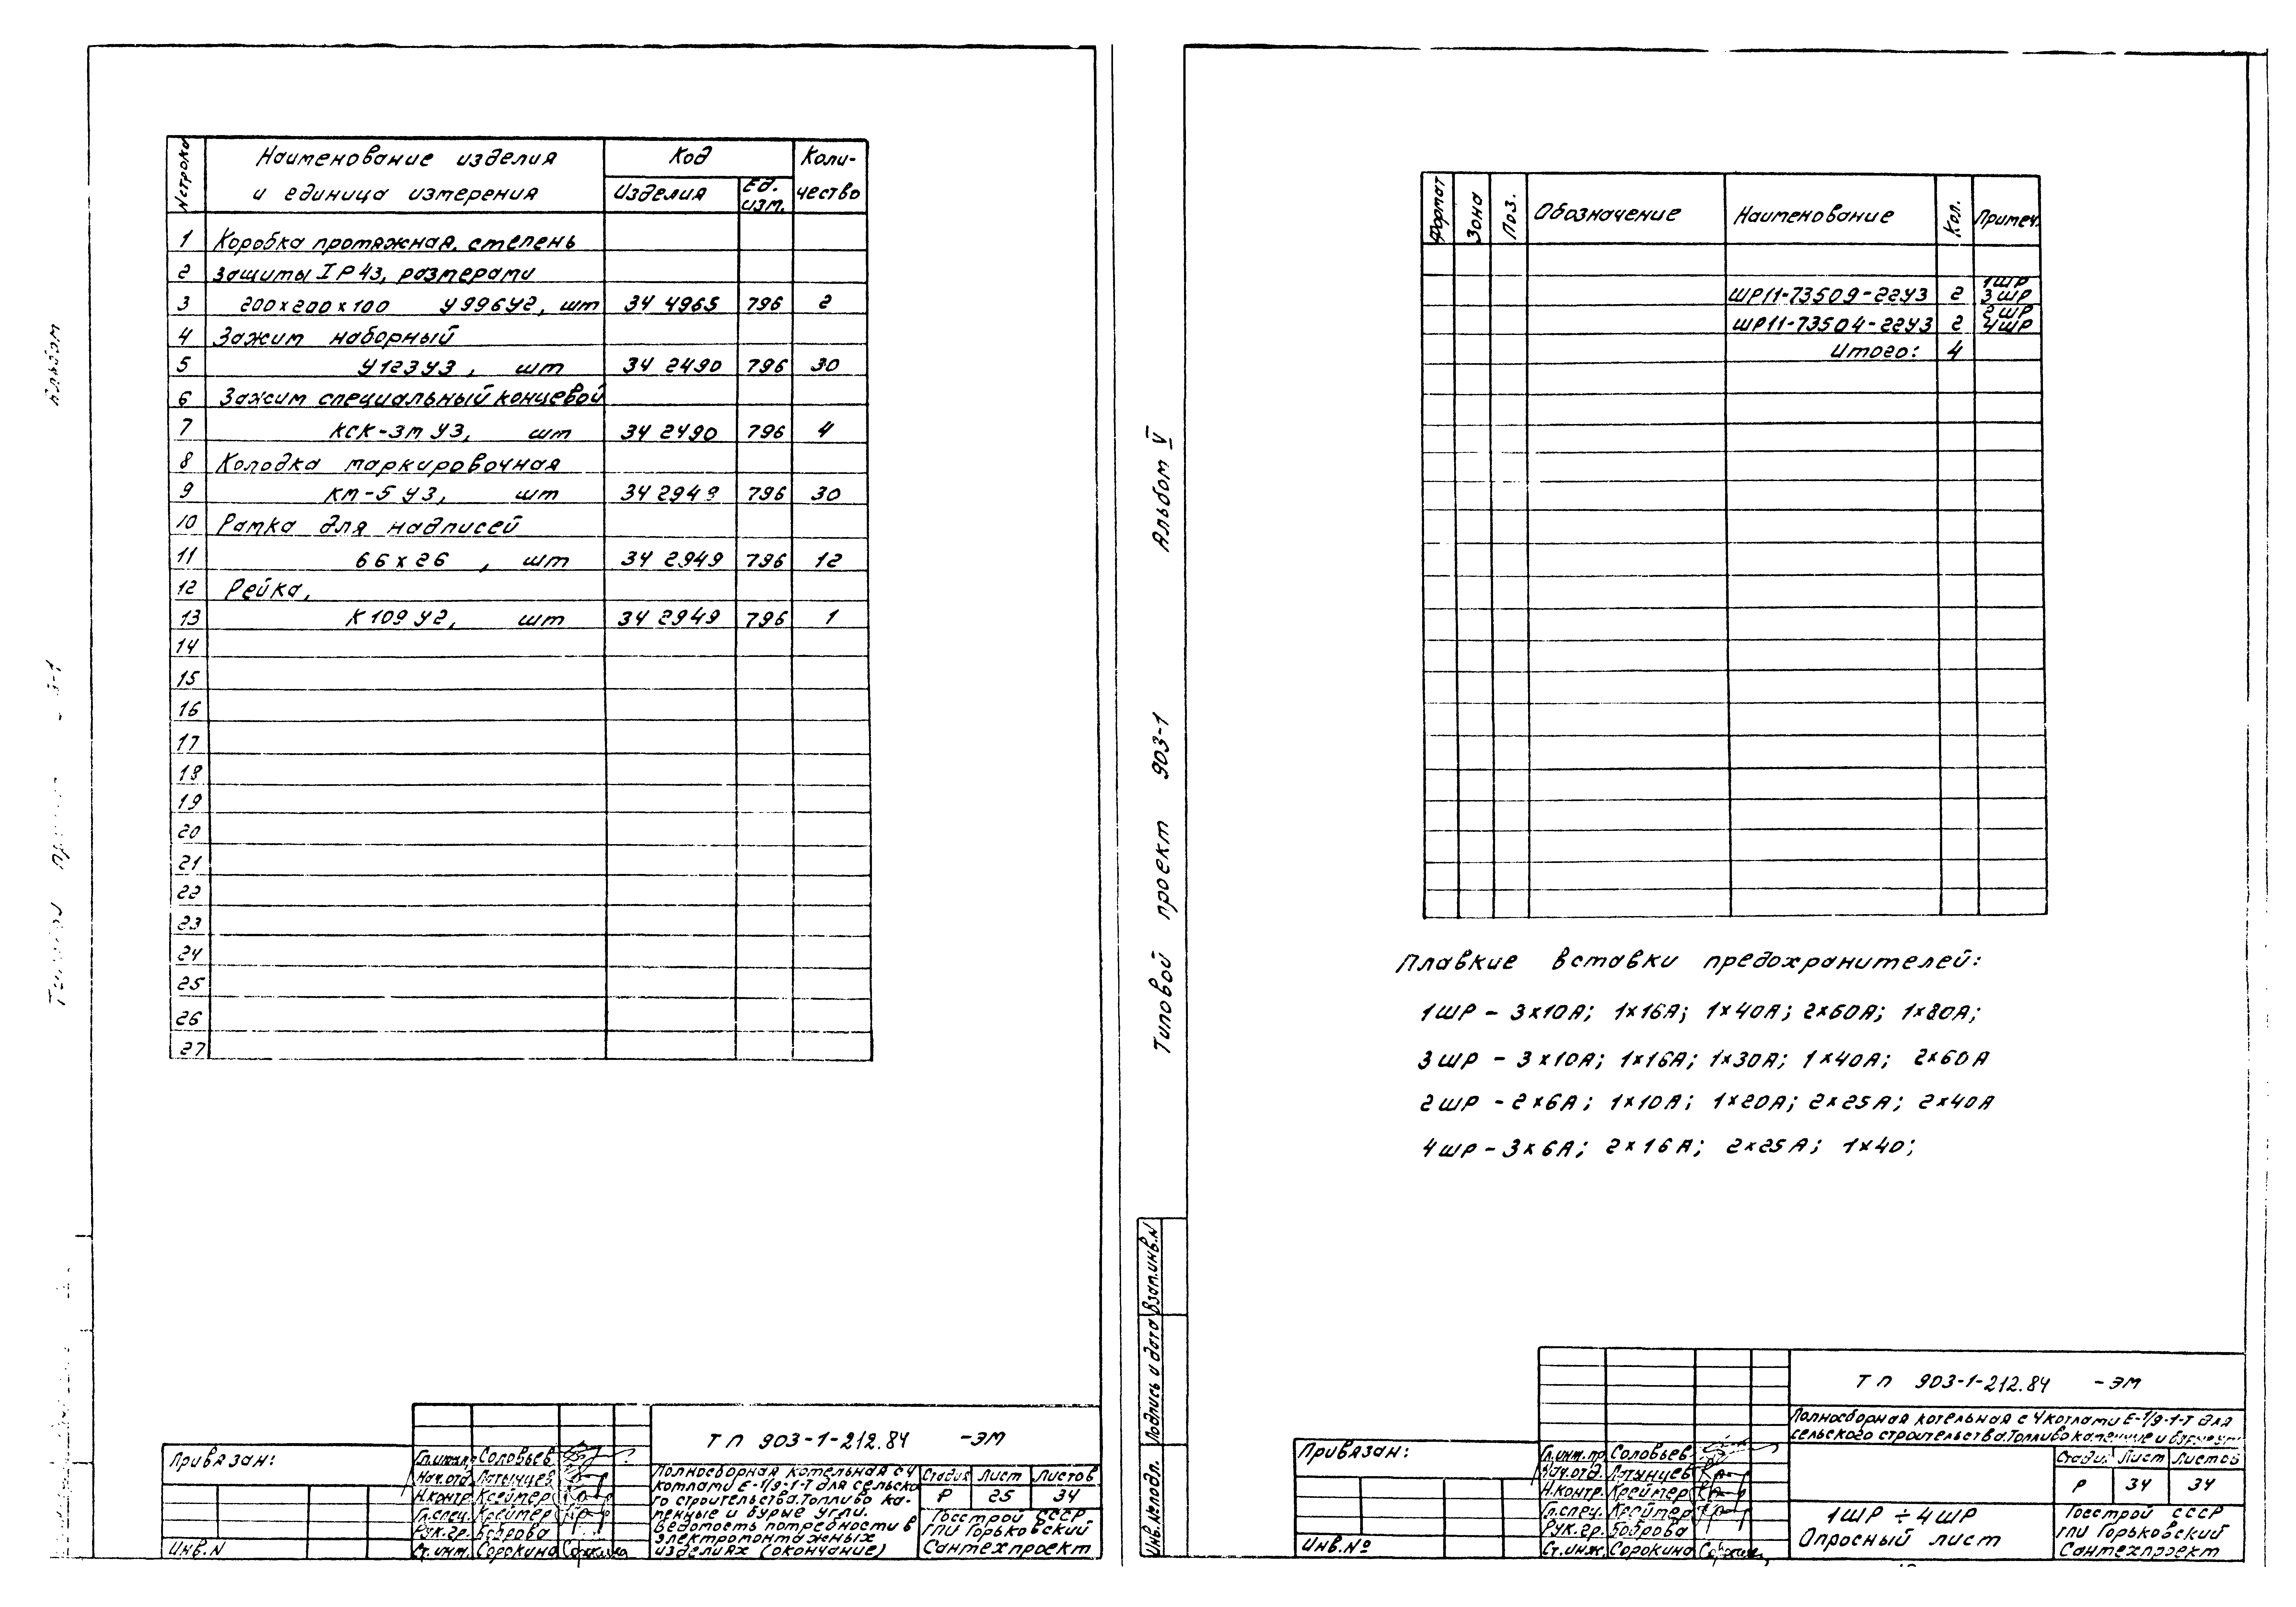 Альбом
№ строки
Наименование изделия
и единица измерения
Код
Изделия
Ед. изм.
Коли-
чество
1 Коробка протяжная, степень
2 защиты IP43, размерами
3 200х200х100 У996У2, шт 34 4965 796 2
4 Зажим наборный
5 У123У3, шт 34 2490 796 30
6 Зажим специальный концевой
7 КСК-3м У3, шт 34 2490 796 4
8 Колодка маркировочная
9 КМ-5 У3, шт 34 2949 796 30
10 Рамка для надписей
11 66х26, шт 34 2949 796 12
12 Рейка,
13 К109У2, шт 34 2949 796 1
14
15
16
17
18
19
20
21
22
23
24
25
26
27
Привязан:
Инв.N
Соловьев
Нач.отд. Латынцев
Н.контр. Крейтер
Гл.спец. Крейтер
Рук.гр. Боброва
Ст.инж. Сорокина Сорокина
ТП 903-1-212.84 -ЭМ
Полносборная котельная с 4
котлами Е-1/9-1-Т для сельско
го строительства. Топливо ка-
менные и бурые угли.
Ведомость потребности в
электромонтажных
изделиях (окончание)
Стадия Лист Листов
Р 25 34
Госстрой СССР
ГПИ Горьковский
Сантехпроект
Типовой проект 903-1 Альбом V
Взам.инв.N
Подпись и дата
Инв.№подл.
Формат Зона Поз. Обозначение Наименование Кол. Примеч.
ШР11-73509-22У3 2 1ШР 3ШР
ШР11-73504-22У3 2 2ШР 4ШР
Итого: 4
Плавкие вставки предохранителей:
1ШР - 3х10А; 1х16А; 1х40А; 2х60А; 1х80А;
3ШР - 3х10А; 1х16А; 1х30А; 1х40А; 2х60А
2ШР - 2х6А; 1х10А; 1х20А; 2х25А; 2х40А
4ШР - 3х6А; 2х16А; 2х25А; 1х40;
Привязан:
Инв.№
Гл.инж.пр. Соловьев
Нач.отд. Латынцев
Н.контр. Крейтер
Гл.спец. Крейтер
Рук.гр. Боброва
Ст.инж. Сорокина
ТП 903-1-212.84 -ЭМ
Полносборная котельная с 4 котлами Е-1/9-1-Т для
сельского строительства. Топливо каменные и бурые угли
Стадия Лист Листов
Р 34 34
1ШР ÷ 4ШР
Опросный лист
Госстрой СССР
ГПИ Горьковский
Сантехпроект